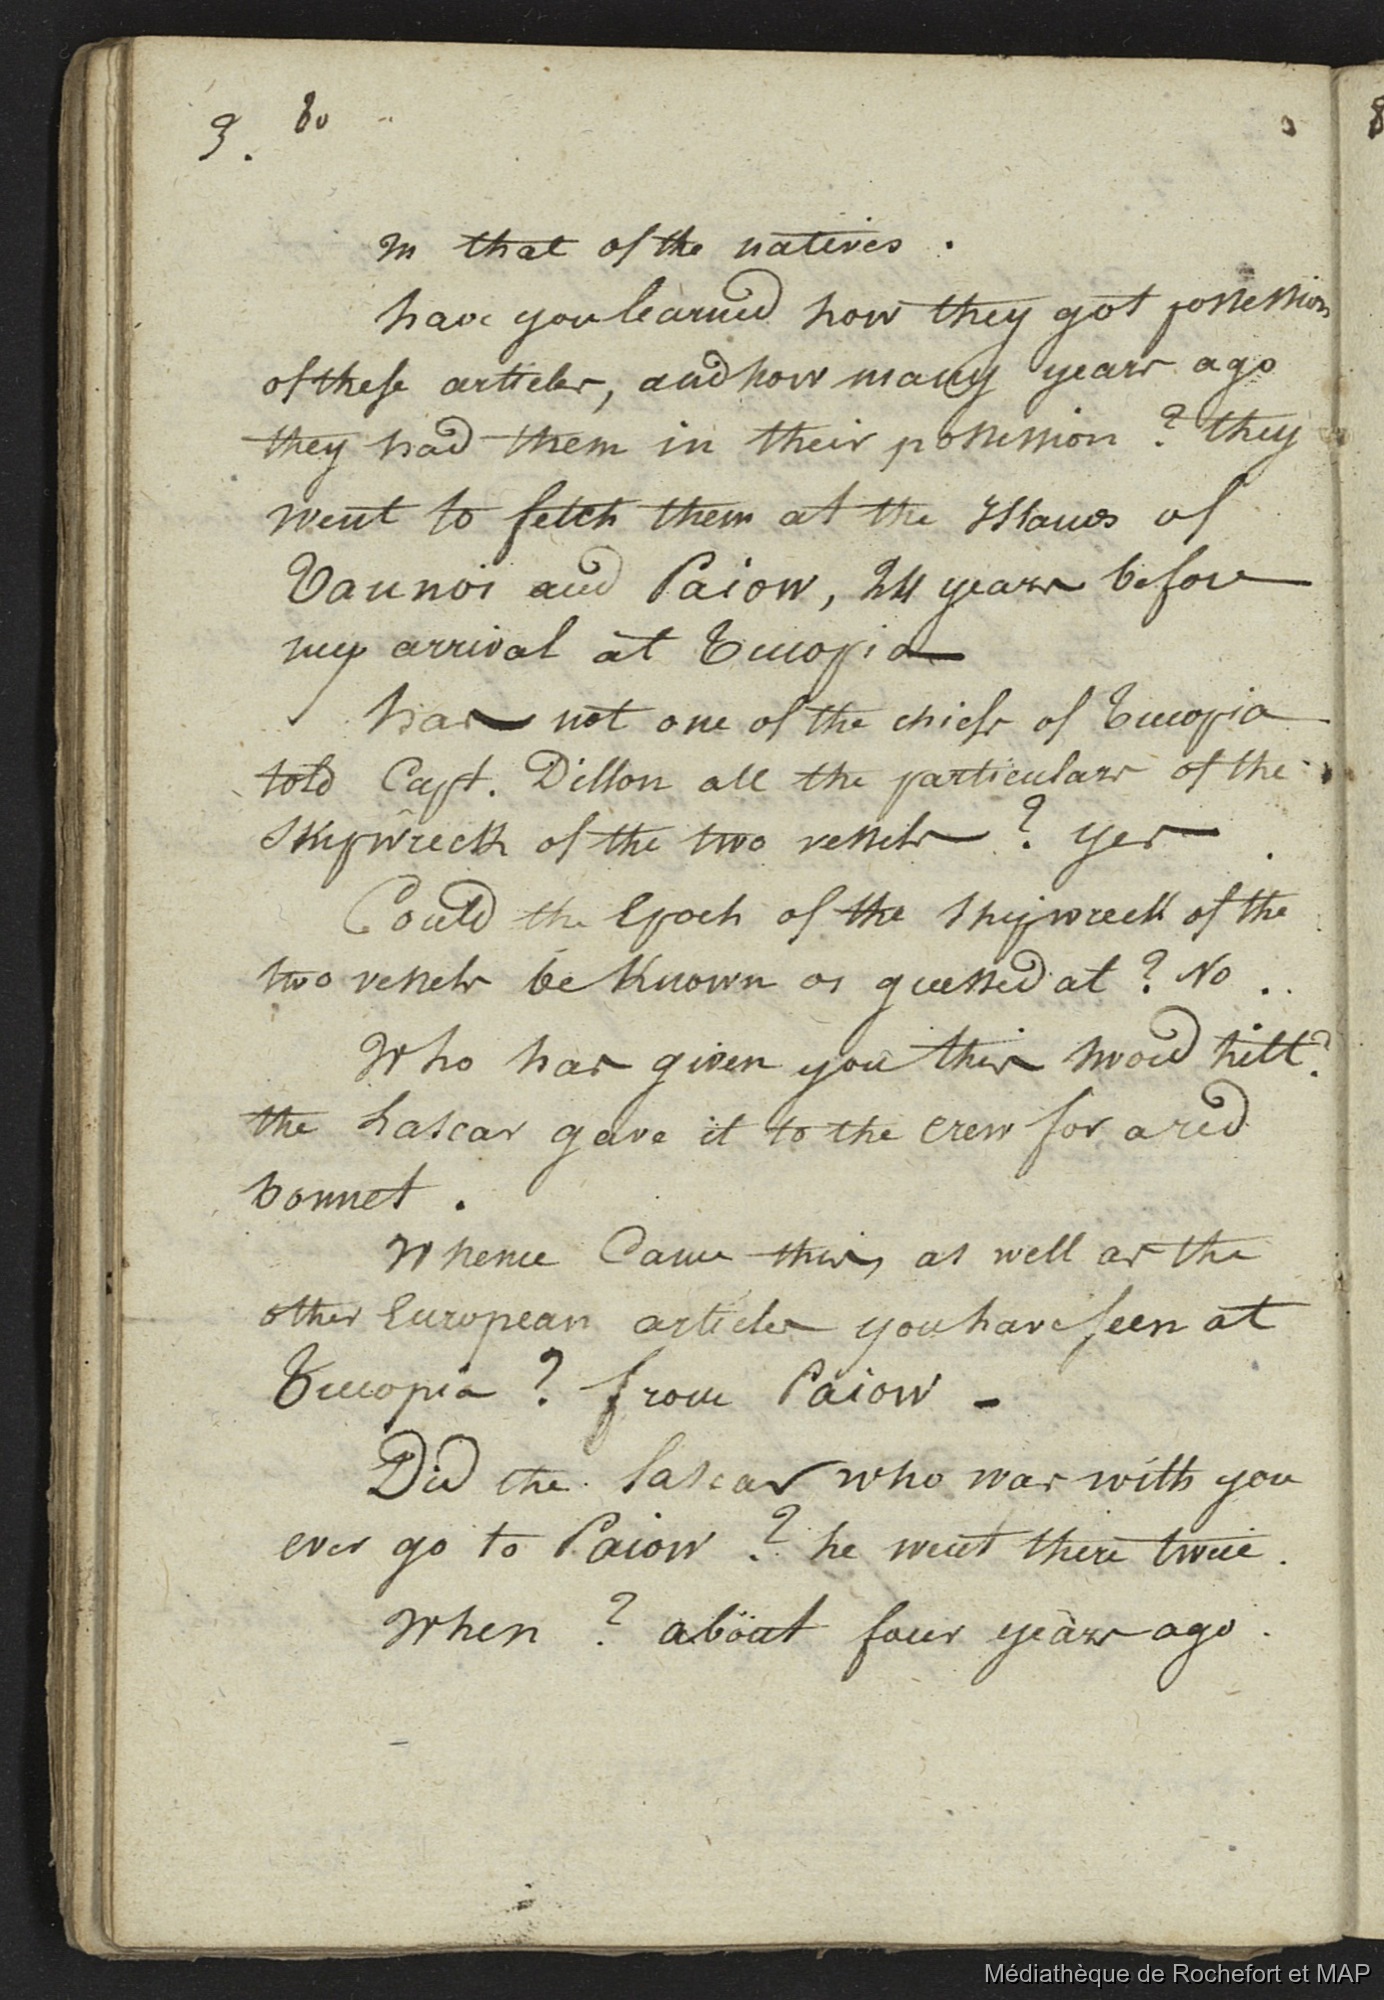 3. 80
In that of the natives .
have you learned how they got possession
of these articles, and how many years ago
they had them in their possession ? they
went to fetch them at the Islands of
Vannoi and Paiow, 24 years before
my arrival at Tucopia
has not one of the chiefs of Tucopia
told Capt. Dillon all the particulars of the
Shipwreck of the two vessels ? yes
Could the Epoch of the shipwreck of the
two vessels be Known or guessed at ? No ..
Who has given you this sword hilt ?
the Lascar gave it to the crew for a red
bonnet .
Whence Came this, as well as the
other European articles you have seen at
Tucopia ? from Paiow -
Did the Lascar who was with you
ever go to Paiow ? he went there twice .
When ? about four years ago .
Médiathèque de Rochefort et MAP